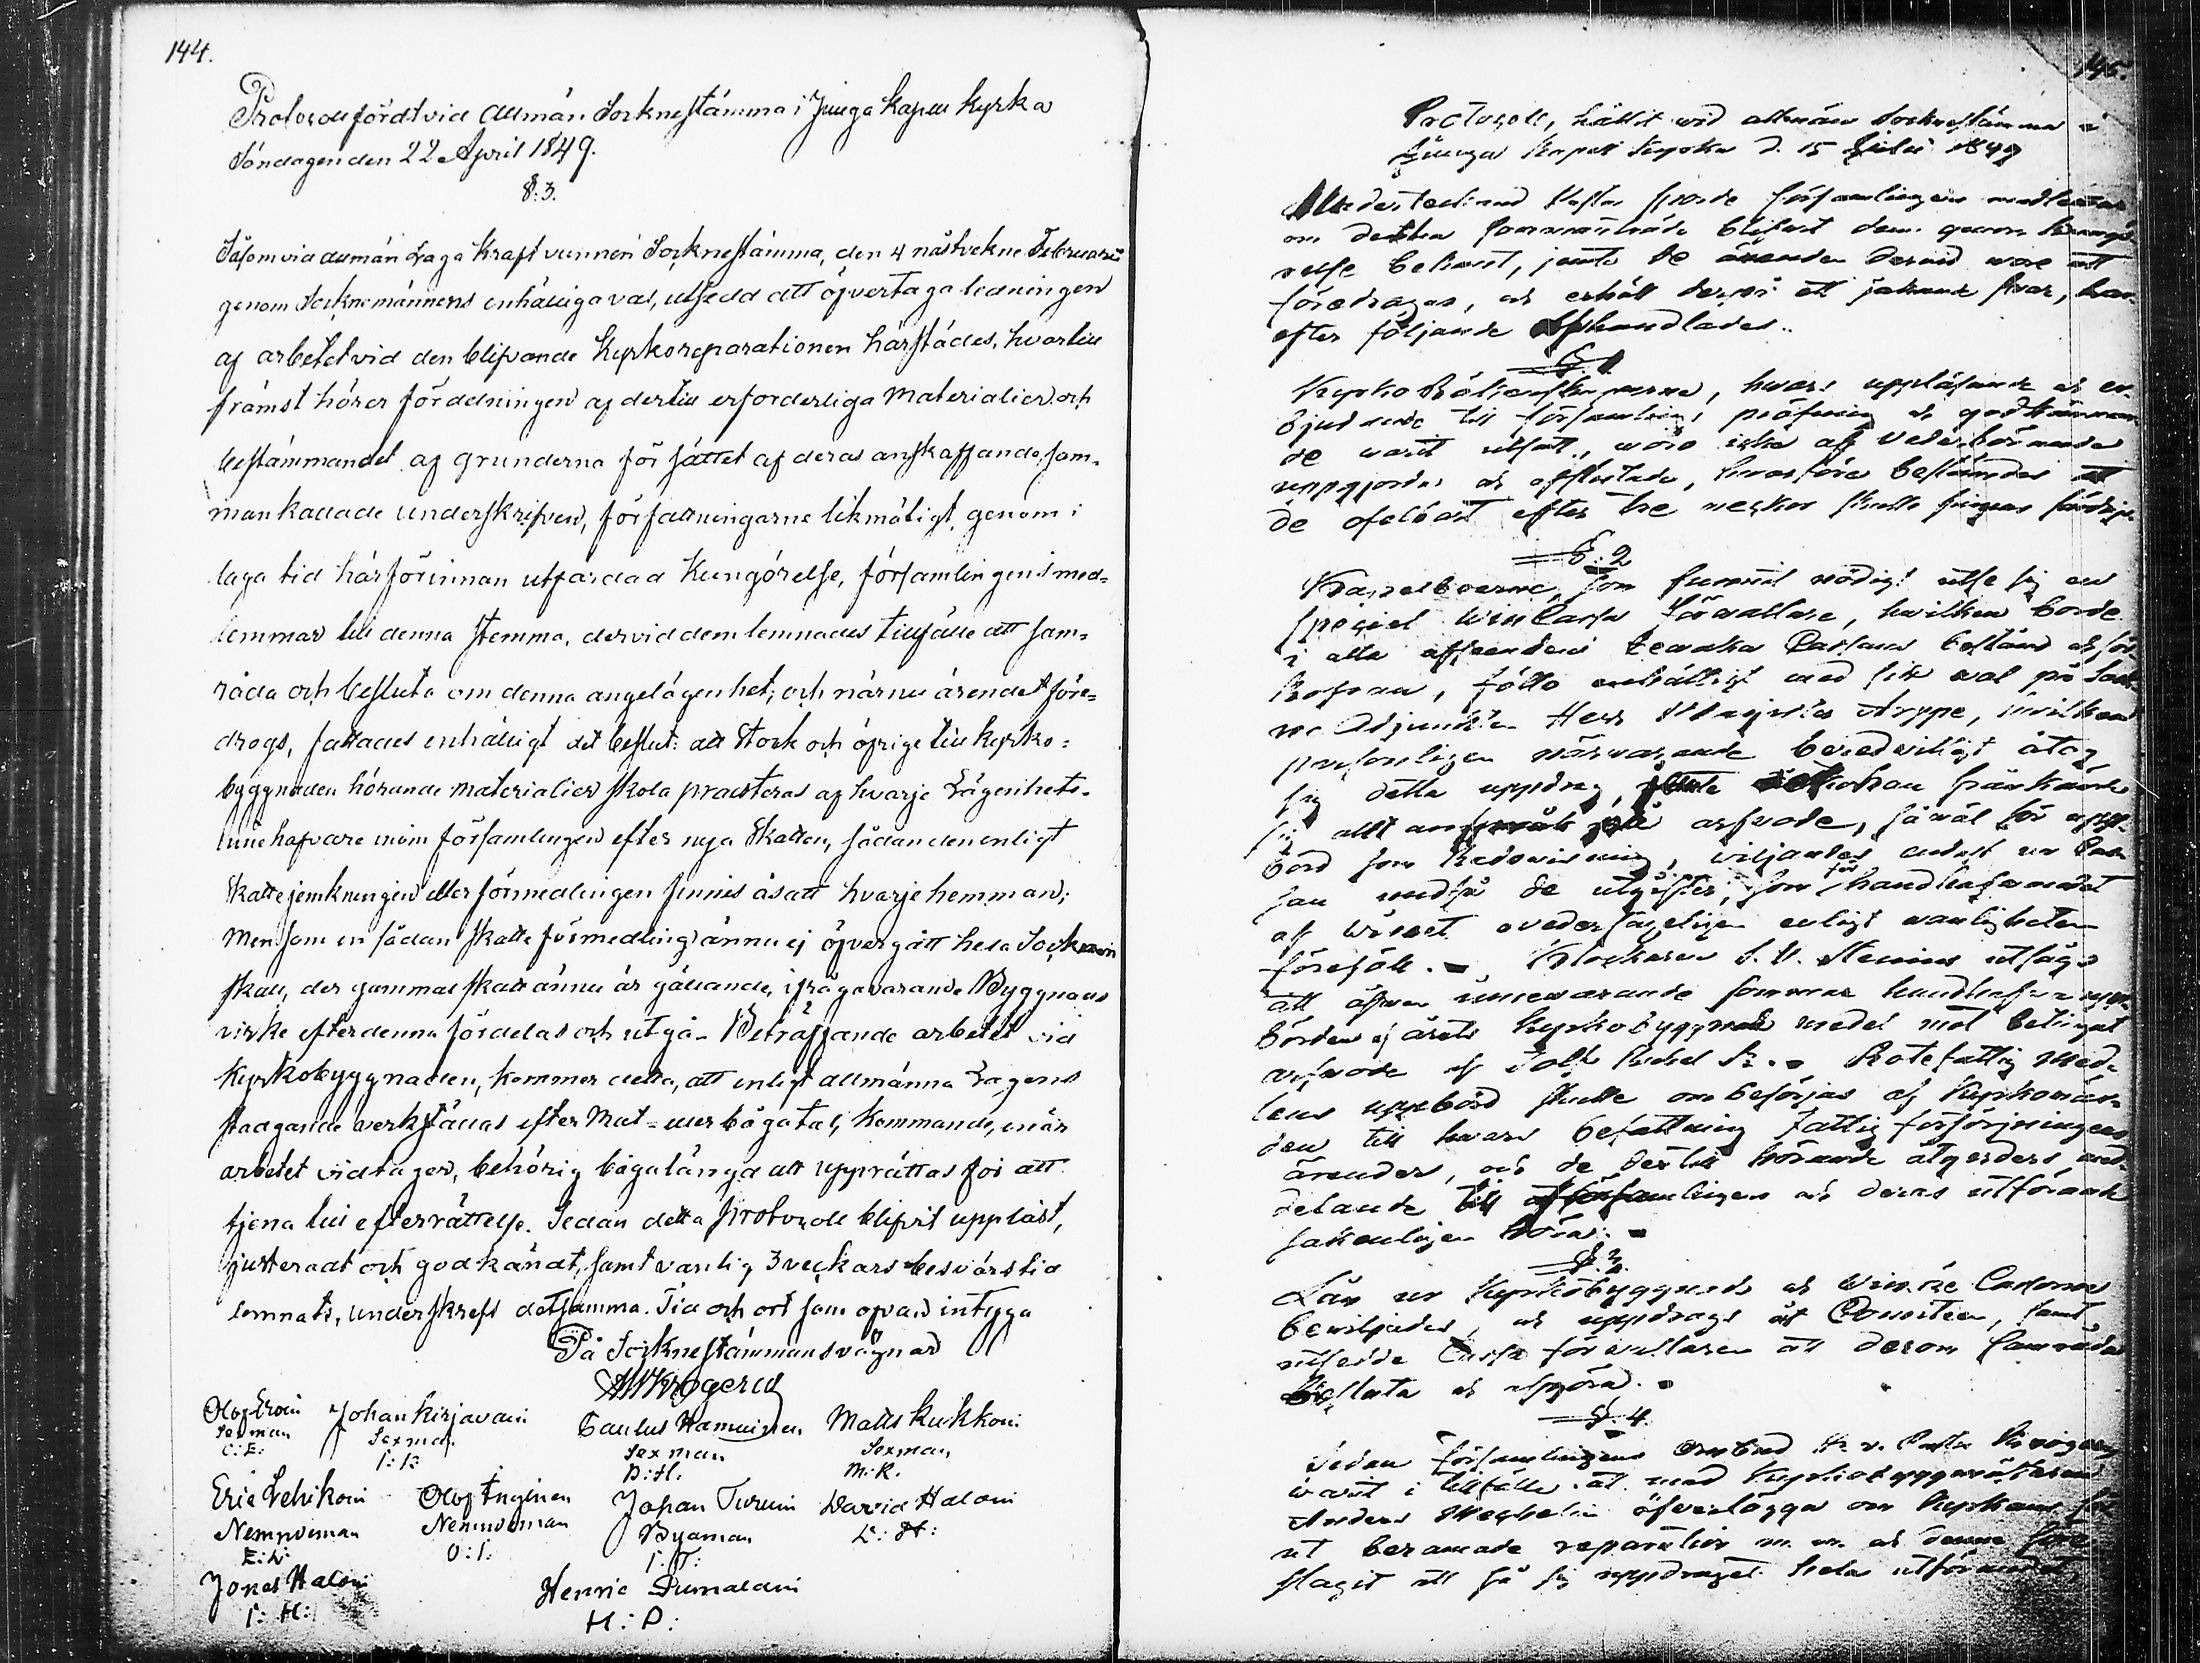 144.
Protocoll fördt vid Allmän Sockne stämma i Jiuga Kapell Kyrka
Söndagen den 22 April 1849.
§.3.
Såsom vid allmän Laga Kraft vunnen Socknestämma, den 4 nästvekne Februarii
genom Socknemännens enhälliga val, utsedd att öfvertaga ledningen
af arbetet vid den blifvande Kyrkoreparationen härstädes, hvartill
främst hörer fördelningen af dertill erforderliga Materialier och
bestämmandet af grunderna för sättet af deras anskaffande, sam-
mankallade underskrifven, författningarne likmätigt, genom i
laga tid härförinnan utfärdad Kungörelse, församlingens med-
lemmar till denna stemma, dervid dem lemnades tillfälle att sam-
råda och besluta om denna angelägenhet; och när nu ärendet före-
drogs, fattades enhälligt det beslut: att Stock och öfrige till kyrko-
byggnaden hörande materialier skola præsteras af hvarje Lägenhets-
innehafvare inom församlingen efter nya Skatten, sådan den enligt
Skattejemkningen eller förmedlingen finnes åsatt hvarje hemman;
Men som en sådan Skatte förmedling ännu ej öfvergått hela Socknen
skall, der gammal skatt ännu är gällande, ifrågavarande Byggnads
virke efter denna fördelas och utgå. Beträffande arbetet vid
Kyrkobyggnaden, kommer detta, att enligt allmänna Lagens
stadgande verkställas efter Mat- eller bågatal, kommande, när
arbetet vidtager, behörig bågalängd att upprättas för att
tjena till efterrättelse. Sedan detta protocoll blifvit uppläst,
justeradt och godkändt, samt vanlig 3 veckors besvärstid
lemnats, underskrefs detsamma. Tid och ort som ofvan intyga
På Socknestämmans vägnar
Krogerus
Olof Eroin Johan Kirjavain Paulus Hamuinen Matts Kukkoin
Sexman Sexman Sexman Sexman
O: E: I: K: P: H. M: K.
Eric Lehikoin Olof Inginen Johan Turuin David Haloin
Nemndeman Nemndeman Byaman D: H:
E: L: O: I: I: T:
Jonas Haloin Henric Pumalain
I: H: H: P:
145.
Protocoll, hållit vid allmän Sockne stämma i
Jiuga Kapell Kyrka d. 15 Julii 1849
Undertecknad Pastor sporde församlingens medlemmar
om detta sammanträde blifvit dem genom kungö-
relse bekant, jemte de ärenden dervid wore att
föredragas, och erhöll derpå ett jakande svar, hvar-
efter följande afhandlades.
§. 1
Kyrko Räkenskaperne, hvars uppläsande och er-
bjudande till församlingens pröfning och godkännan-
de varit utsatt, woro icke af vederbörande
uppgjorde och afslutade, hvarföre bestämdes att
de ofelbart efter tre veckor skulle finnas färdige
§. 2
Kapellboerne, som funnit nödigt utse sig en
speciel Wincassa förvaltare, hvilken borde
i alla afseenden bevaka Cassans bestånd och för-
kofran, föllo enhälligt med sitt val på Sock-
ne Adjuncten Herr Magister Arppe, hvilken
personligen närvarande beredvilligt åtog
sig detta uppdrag, han frånkände
sig allt arfvode, såväl för upp-
börd som Redovisning, viljandes endast ur Cas-
san undfå de utgifter, som för handhafvandet
af wäret ovedersägligen enligt vanligheten
förefölle. Klockaren S. W. Stenius utsågs
att äfven innevarande sommar handhafva upp-
börden af årets Kyrkobyggnads medel mot betingat
arfvode af Tolf Rubel Sr. Rotefattig Med-
lens uppbörd skulle ombesörjas af Kyrkovär-
den till hvars befattning fattigförsörjningens
ärender, och de dertill hörande åtgärders med-
delande till församlingen och deras utförande
sakenligen höra.
§. 3.
Lån ur Kyrkobyggnads och Wincke Cassorna
beviljades, och uppdrogs åt Comitéen, samt
utsedde Cassa förvaltaren att derom samråda
besluta och afgöra.
§. 4.
Sedan församlingens Ombud Hr v. Pastor Krogerus
warit i tillfälle att med Kyrkobyggmästaren
Anders öfverlägga om Kyrkans för-
ut beramade reparation m. m. och denne före-
slagit att få sig uppdraget hela utförandet